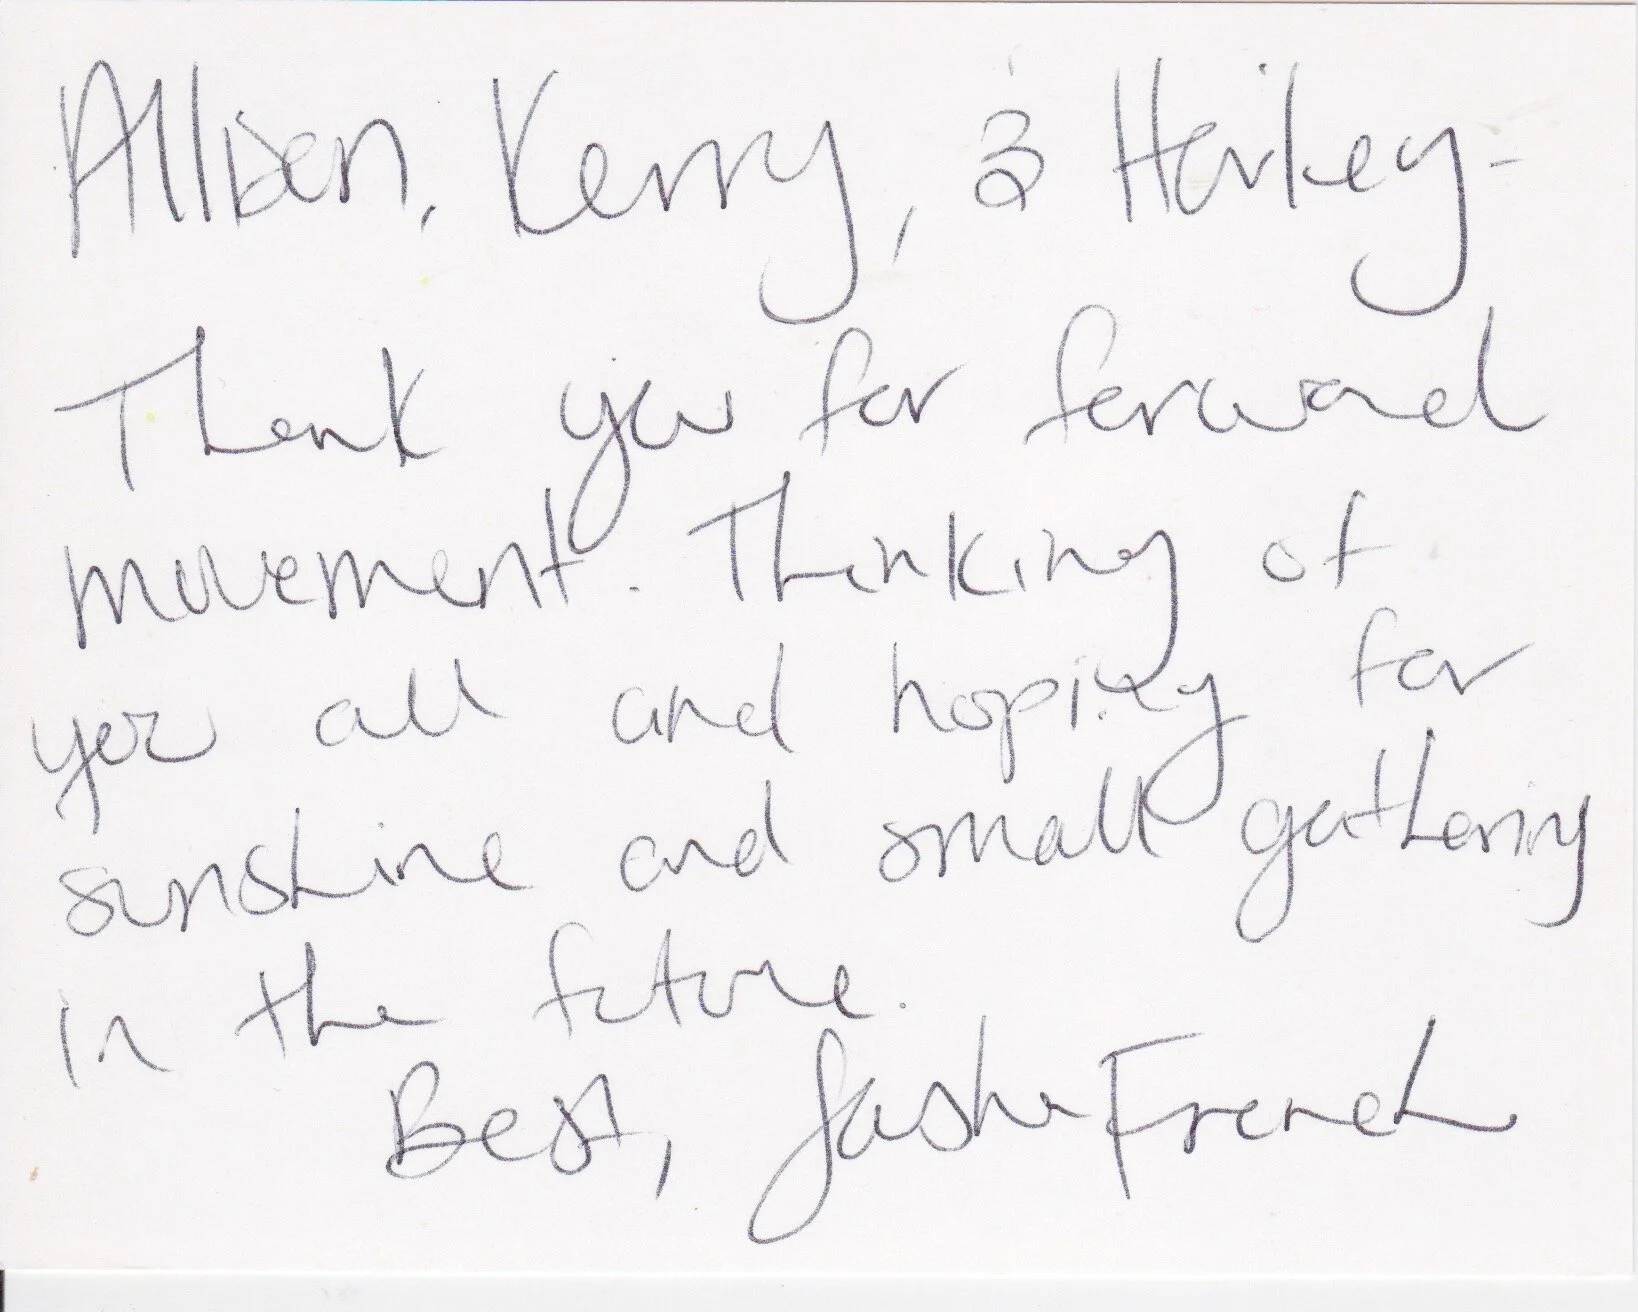 Allison, Kerry, & Harley-
Thank you for forward
movement. Thinking of
you all and hoping for
sunshine and small gathering
in the future.
Best, Sasha French